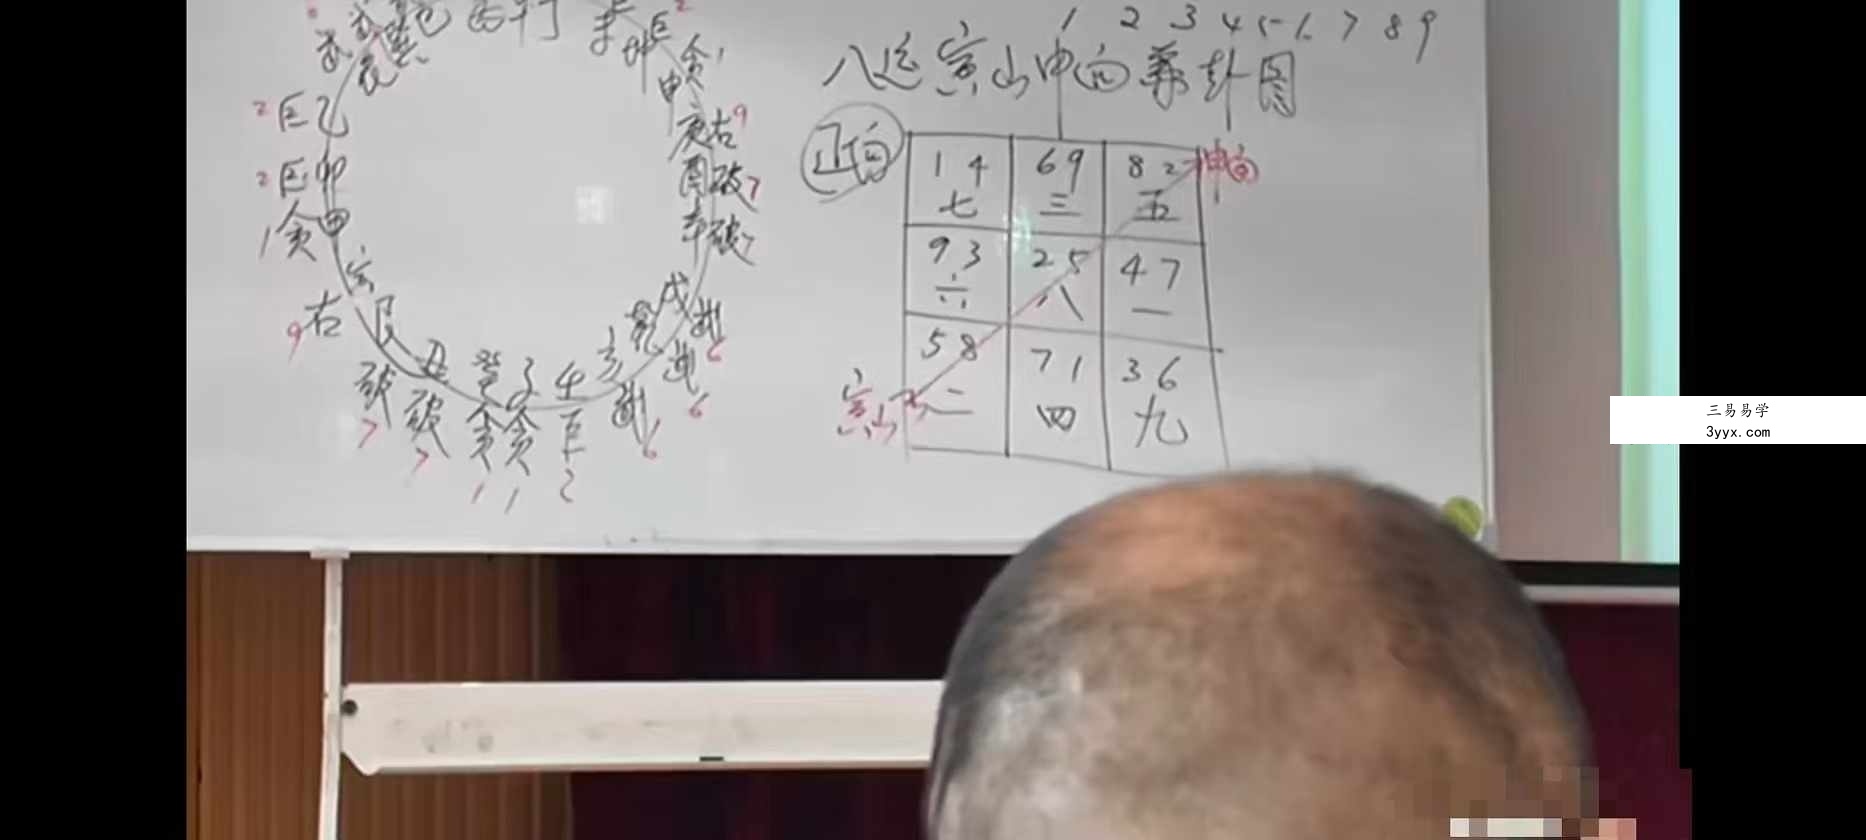 1 2 3 4 5 6 7 8 9
八运寅山申向替卦图
正向
1 4 6 9 8 2 申向
七 三 五
9 3 2 5 4 7
六 八 一
5 8 7 1 3 6
寅山 二 四 九
巽
辰
2 巨 乙
2 巨 卯
1 贪 甲
寅
9 右
艮
破
7
丑
破
7
癸
贪
1
子
贪
1
壬
巨
2
亥
武
6
乾
武
6
戌
武
6
辛 破 7
酉 破 7
庚 右 9
申 贪 1
坤 巨 2
三易易学
3yyx.com